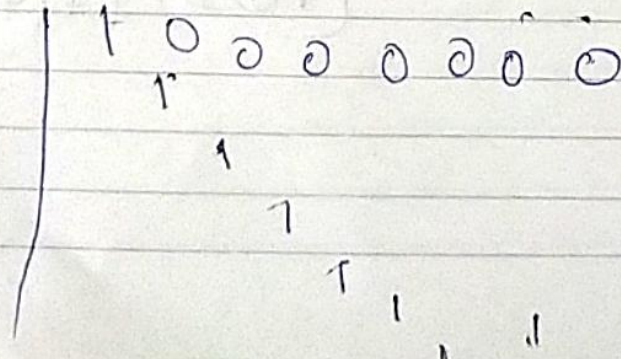 1 0 0 0 0 0 0 0
1
1
1
1
1
1